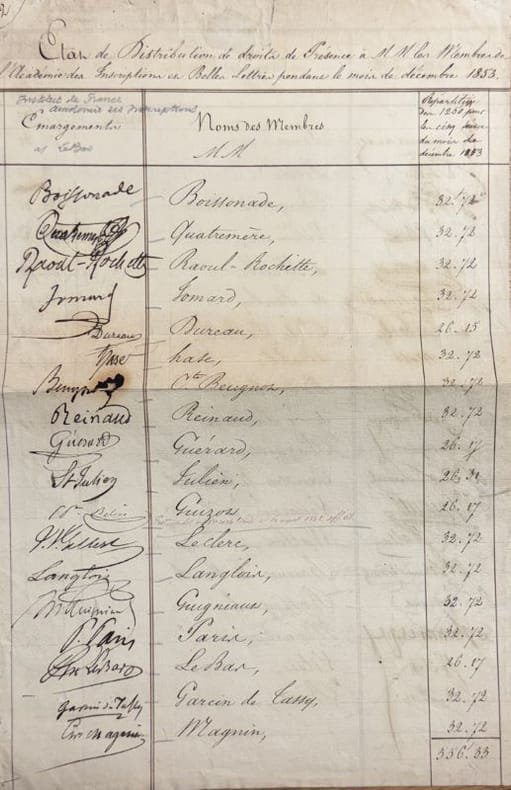 2
Etat de Distribution de droits de Présence à M M les Membres de
l'Académie des Inscriptions et Belles Lettres pendant le mois de décembre 1853.
Institut de France
Académie des Inscriptions
Emargements
Noms des Membres
M M
Répartition
des 1250 pour
les cinq
du mois de
décembre 1853
Boissonade Boissonade, 32.72
Quatremère Quatremère, 32.72
Raoul-Rochette Raoul-Rochette, 32.72
Jomard Jomard, 32.72
Bureau Bureau, 26.15
hase hase, 32.72
Beugnot Cte Beugnot, 32.72
Reinaud Reinaud, 32.72
Guérard Guérard, 26.17
St Julien Julien, 26.31
Guizot, 26.17
Leclerc, 32.72
Langlois Langlois, 32.72
Guigniaut Guigniaut, 32.72
P. Paris Paris, 32.72
Ph. Le Bas Le Bas, 26.17
Garcin de Tassy Garcin de Tassy, 32.72
Ch. Magnin Magnin, 32.72
556.33